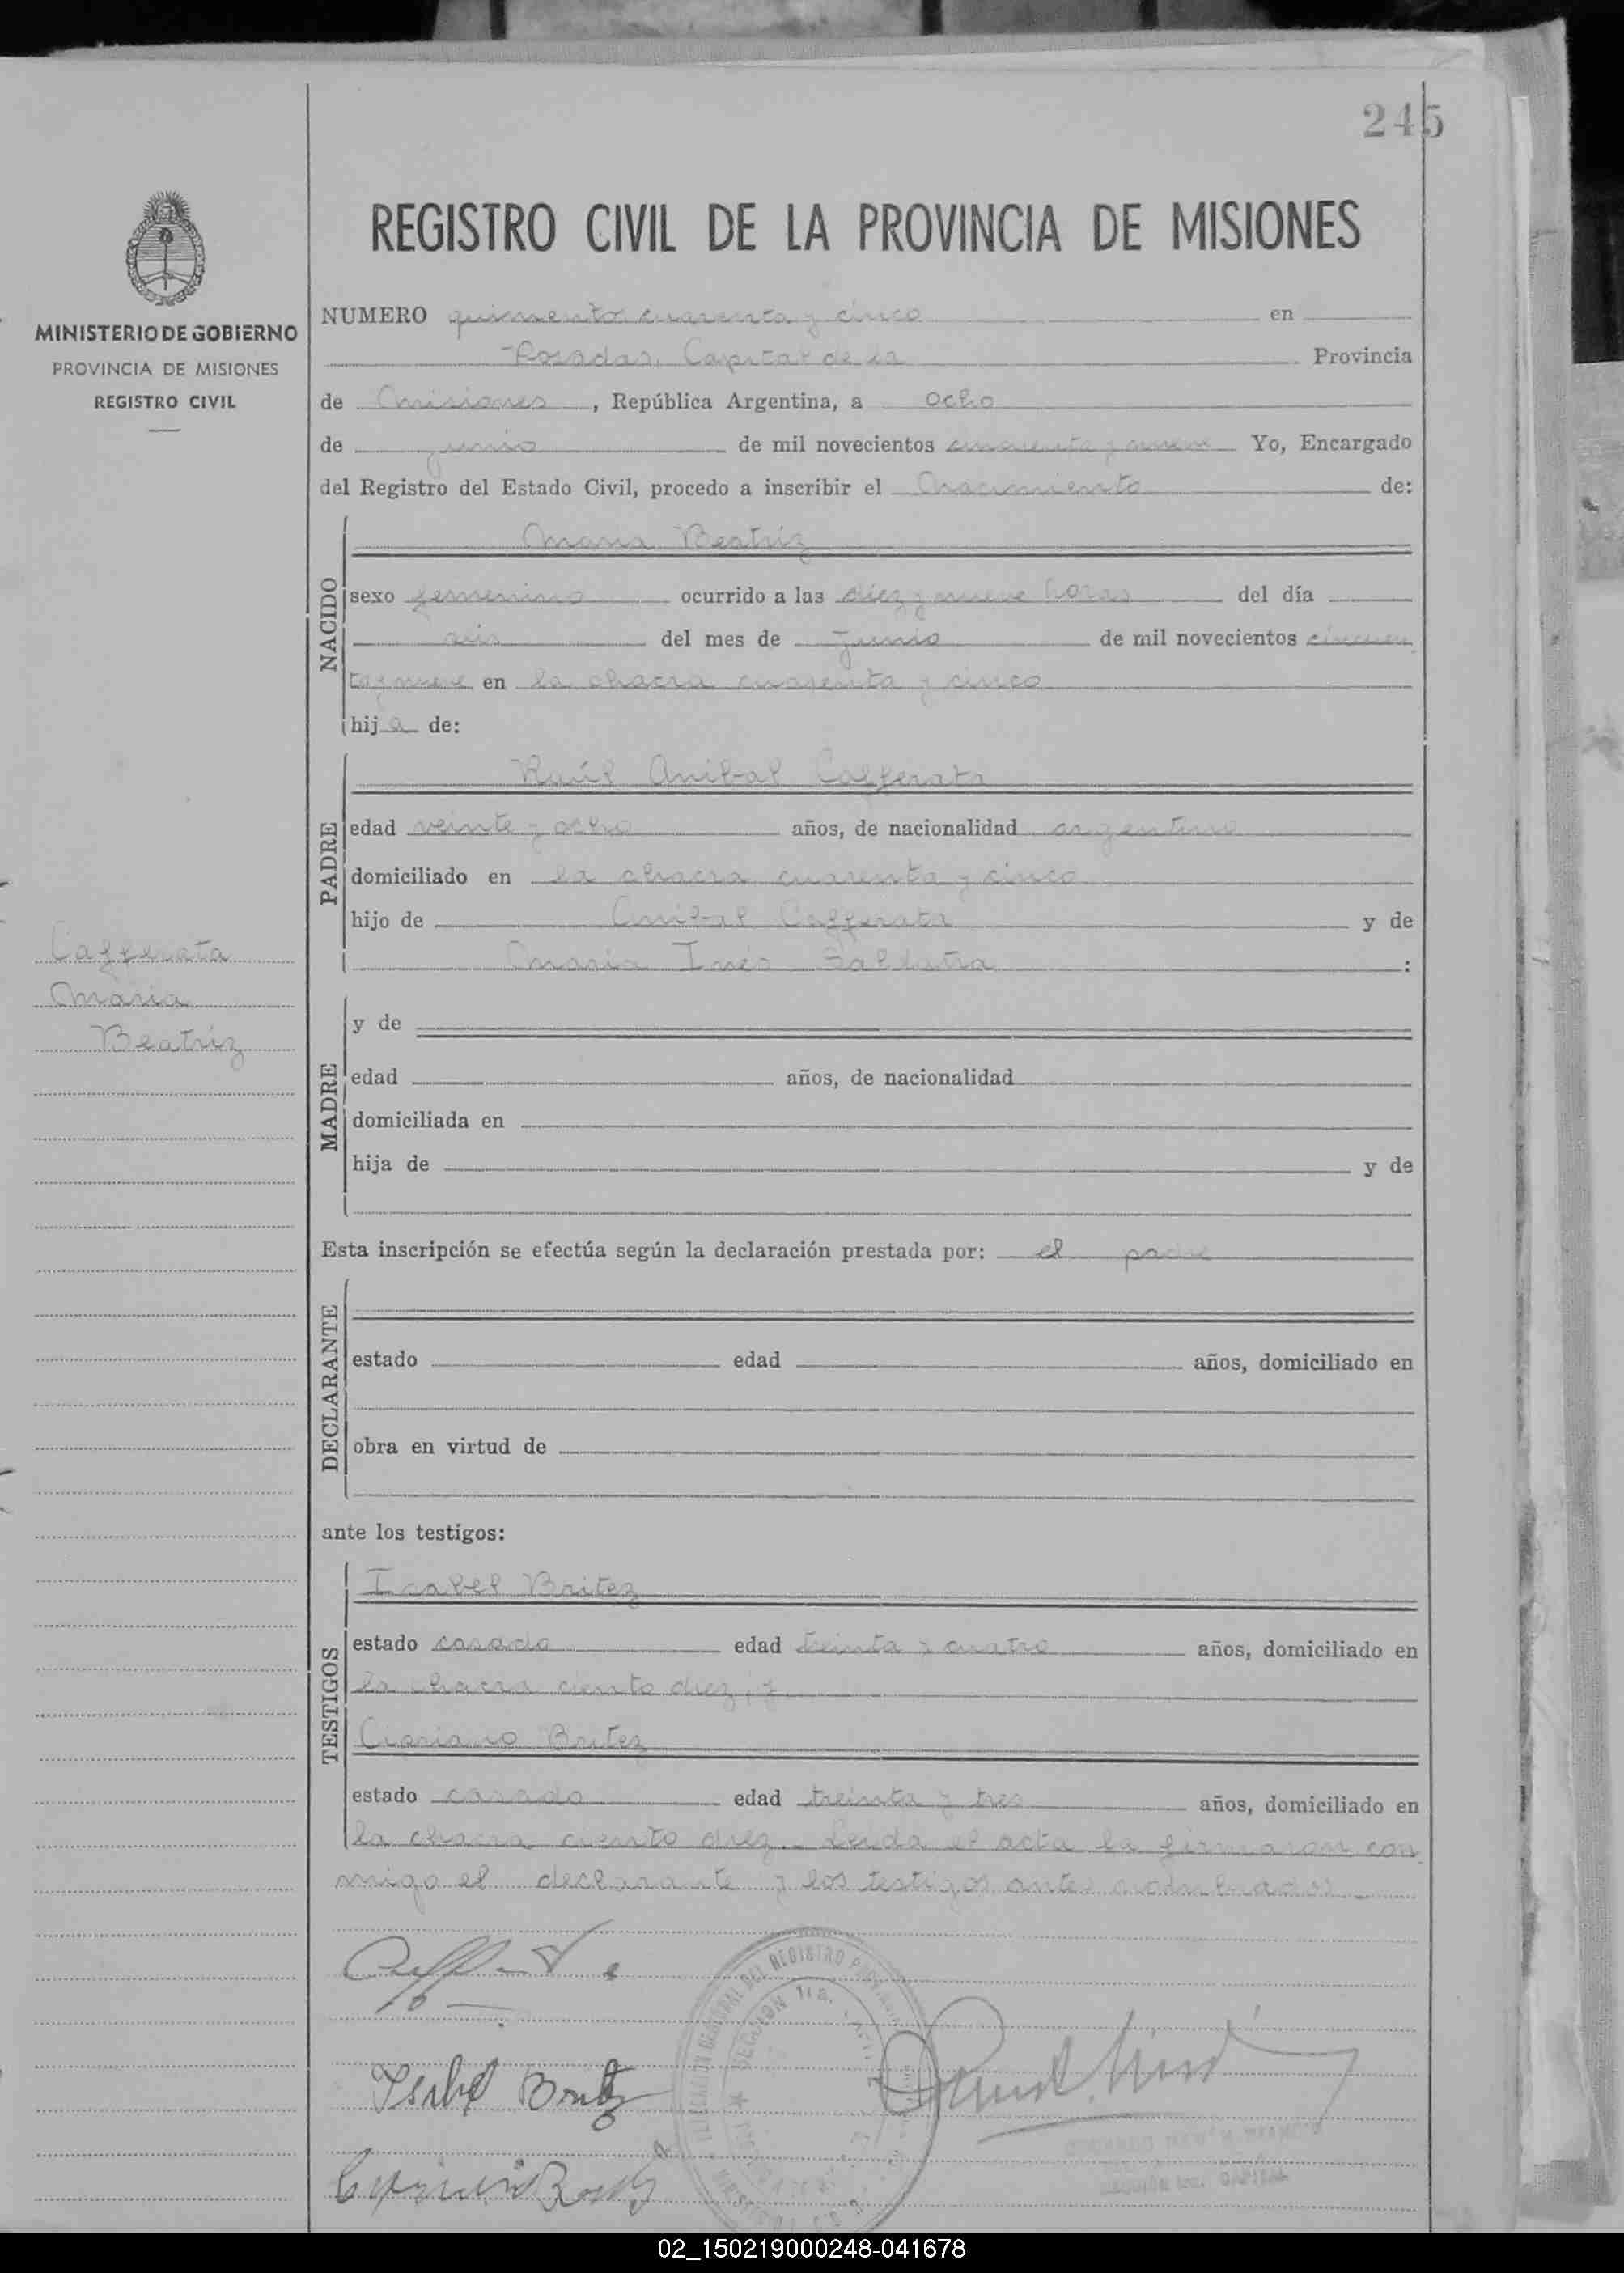 245
REGISTRO CIVIL DE LA PROVINCIA DE MISIONES
MINISTERIO DE GOBIERNO
PROVINCIA DE MISIONES
REGISTRO CIVIL
NUMERO quinientos cuarenta y cinco en
Posadas, Capital de la Provincia
de Misiones, República Argentina, a ocho
de junio de mil novecientos cincuenta y nueve Yo, Encargado
del Registro del Estado Civil, procedo a inscribir el Nacimiento de:
NACIDO
Maria Beatriz
sexo femenino ocurrido a las diez y nueve horas del día
seis del mes de junio de mil novecientos cincuen
ta y nueve en la chacra cuarenta y cinco
hija de:
PADRE
Raúl Anibal Cafferata
edad veinte y ocho años, de nacionalidad argentino
domiciliado en la chacra cuarenta y cinco
hijo de Anibal Cafferata y de
Maria Inés :
Cafferata
Maria
Beatriz
MADRE
y de
edad años, de nacionalidad
domiciliada en
hija de y de
Esta inscripción se efectúa según la declaración prestada por: el padre
DECLARANTE
estado edad años, domiciliado en
obra en virtud de
ante los testigos:
TESTIGOS
Isabel Britez
estado casada edad treinta y cuatro años, domiciliado en
la chacra ciento diez, y
Cipriano Britez
estado casado edad treinta y tres años, domiciliado en
la chacra ciento diez.- Leida el acta la firmaron con
migo el declarante y los testigos antes nombrados.-
Ysabel Britez
02_150219000248-041678